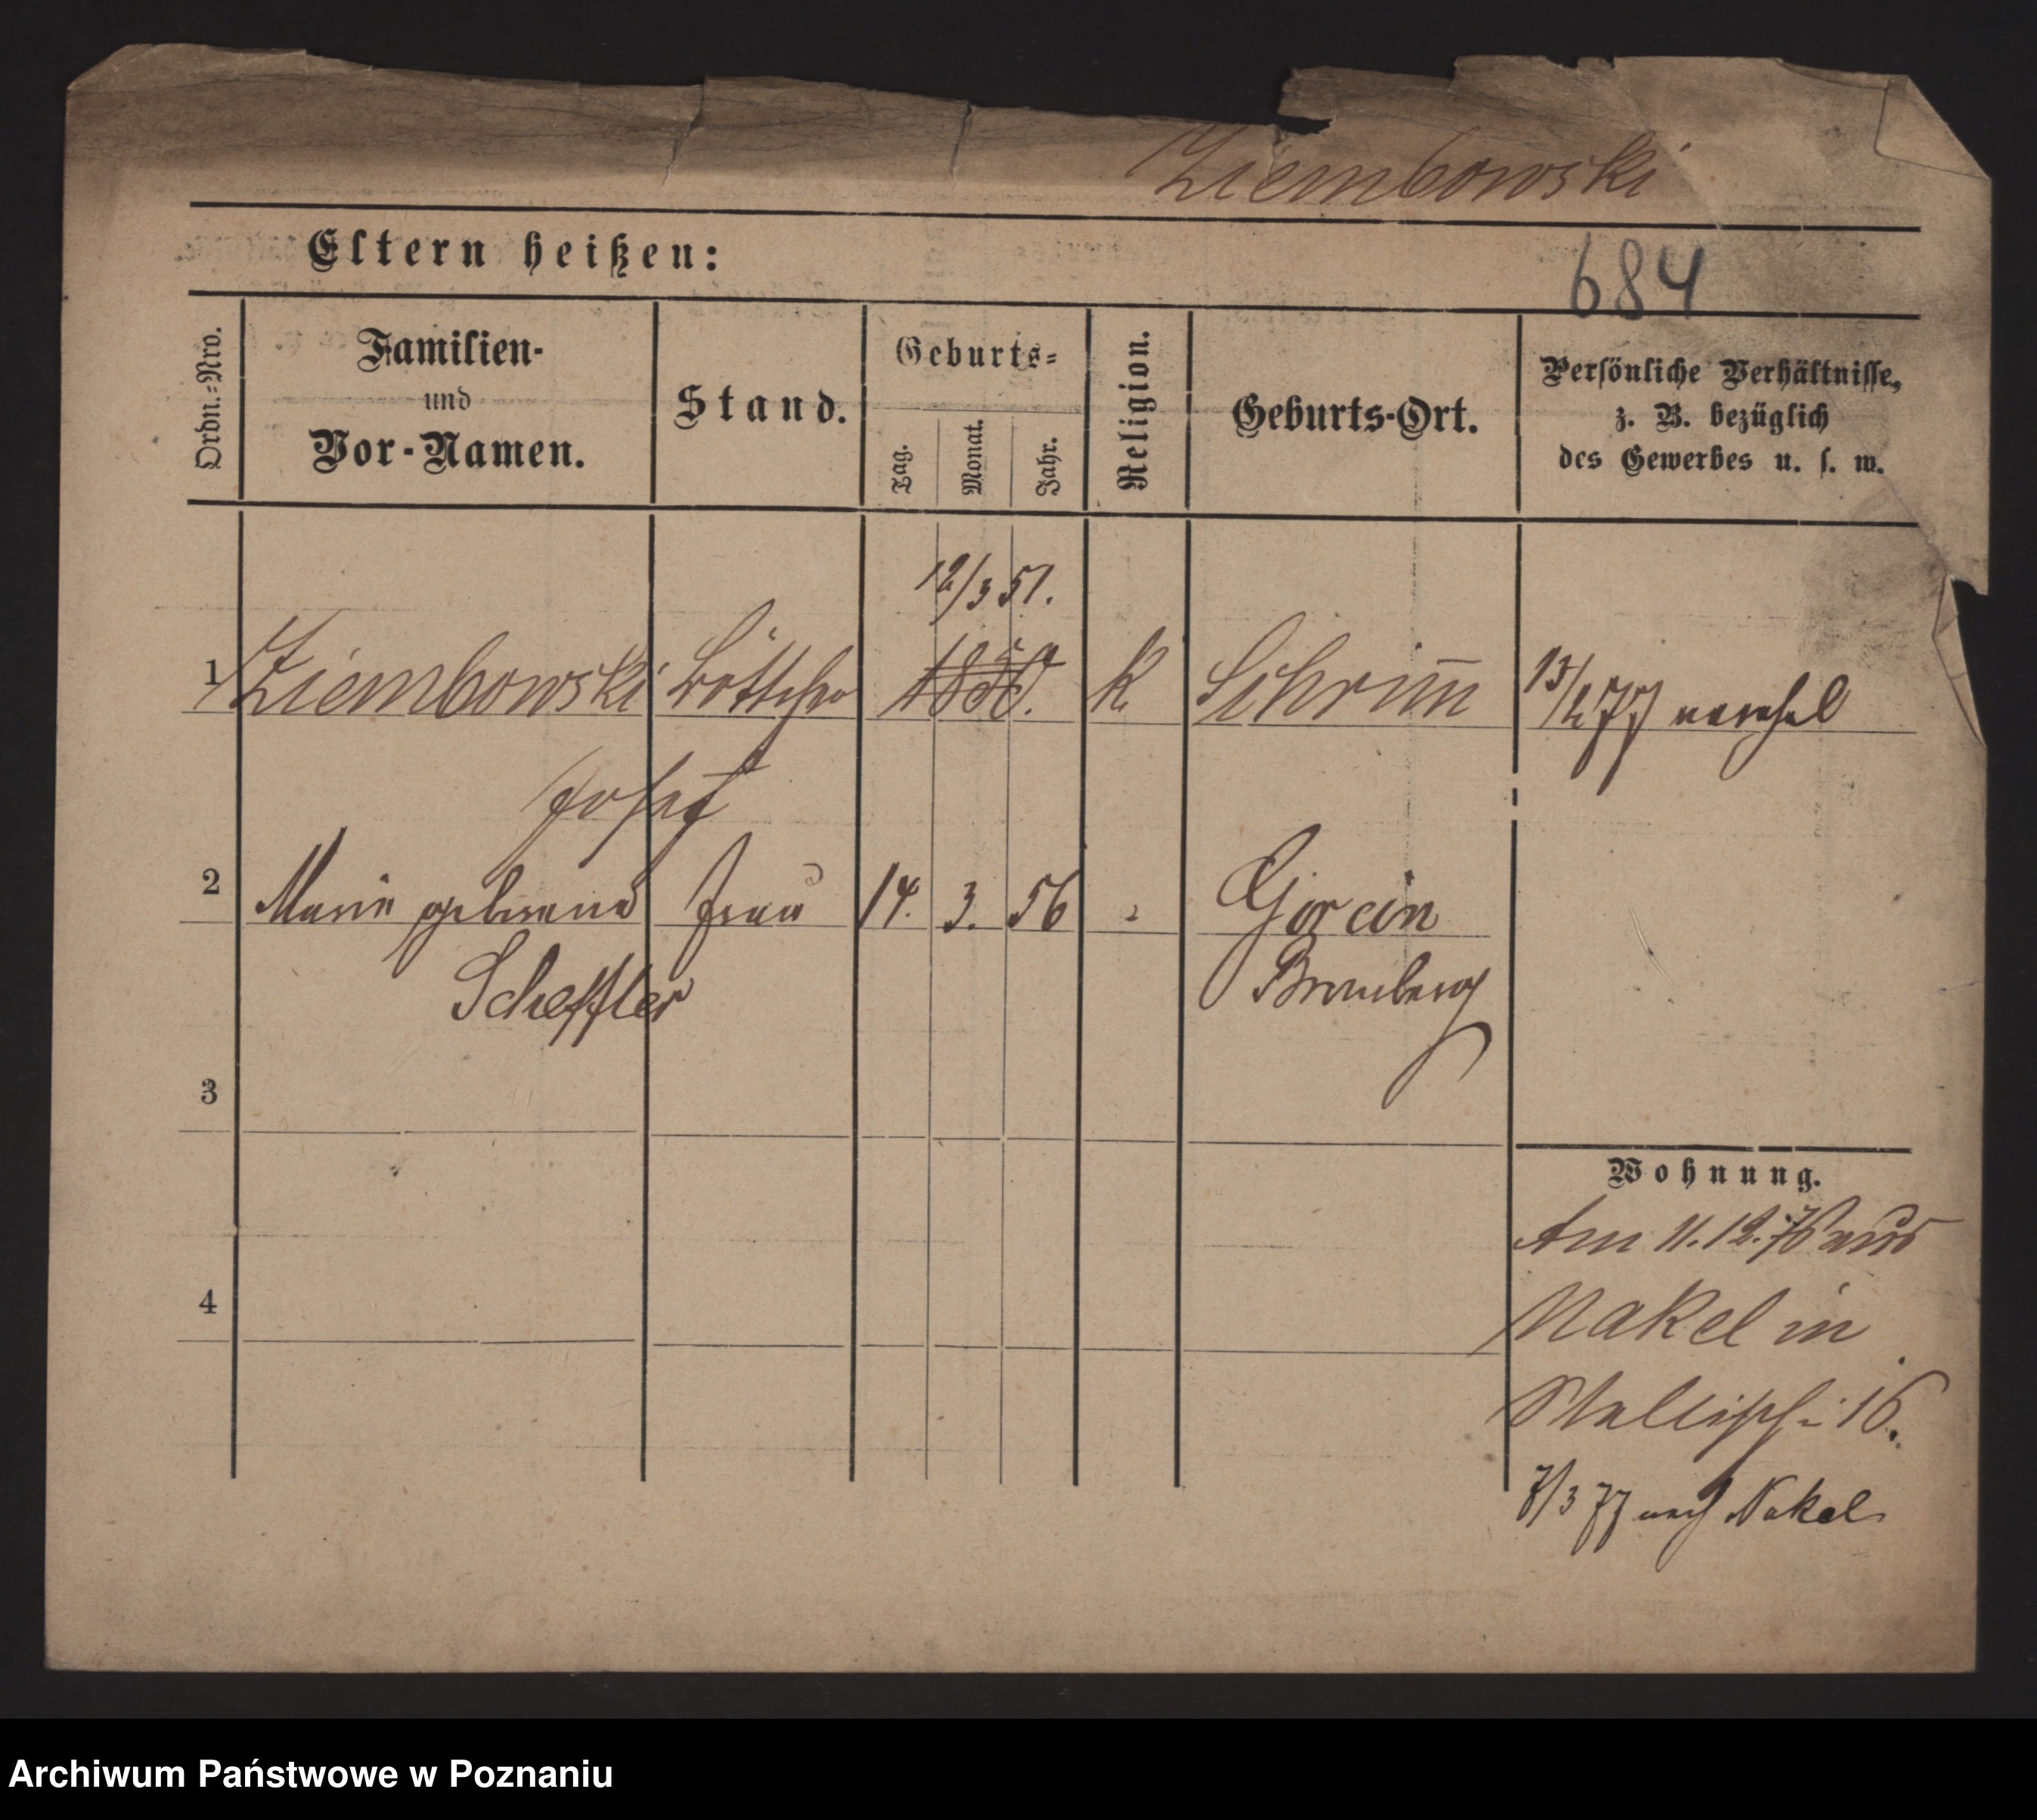 Ziembowski
Eltern heißen:
684
Ordn.-Nro.
Familien-
und
Vor-Namen.
Stand.
Geburts-
Tag.
Monat.
Jahr.
Religion.
Geburts-Ort.
Persönliche Verhältnisse,
z. B. bezüglich
des Gewerbes u. s. w.
12/3 51.
1 Ziembowski Böttcher k. Schrim̅ 13/2 77
Josef
2 Marie geborene Frau 14. 3. 56 Gorcin
Scheffler Bromberg
3
Wohnung.
Am 11.12.76 aus
4
Nakel in
16.
7/3 77 nach Nakel
Archiwum Państwowe w Poznaniu